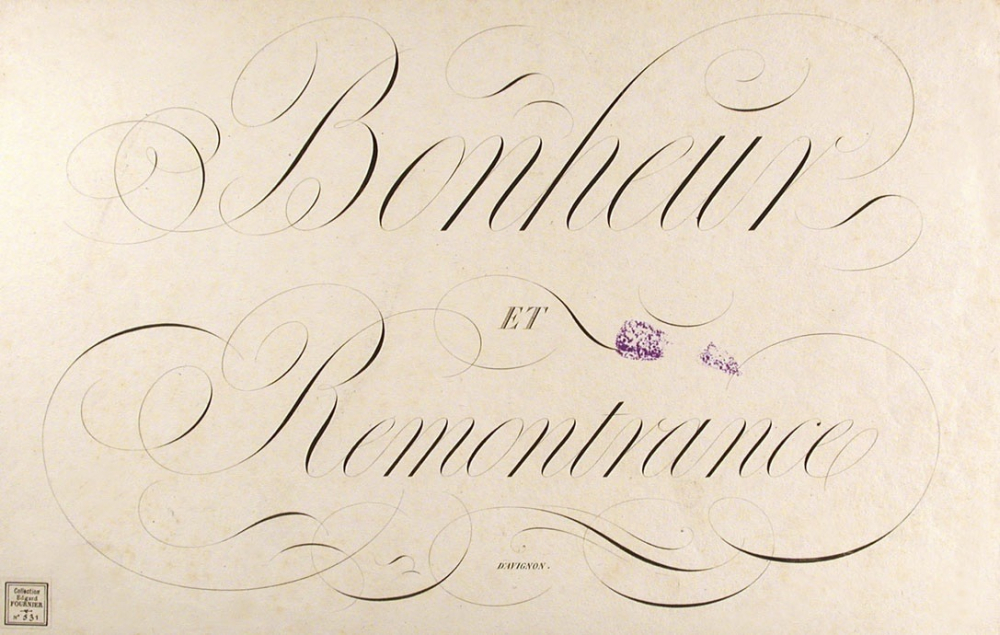 Bonheur
ET
Remontrance
D'AVIGNON.
Collection
Edgard
FOURNIER
n° 531